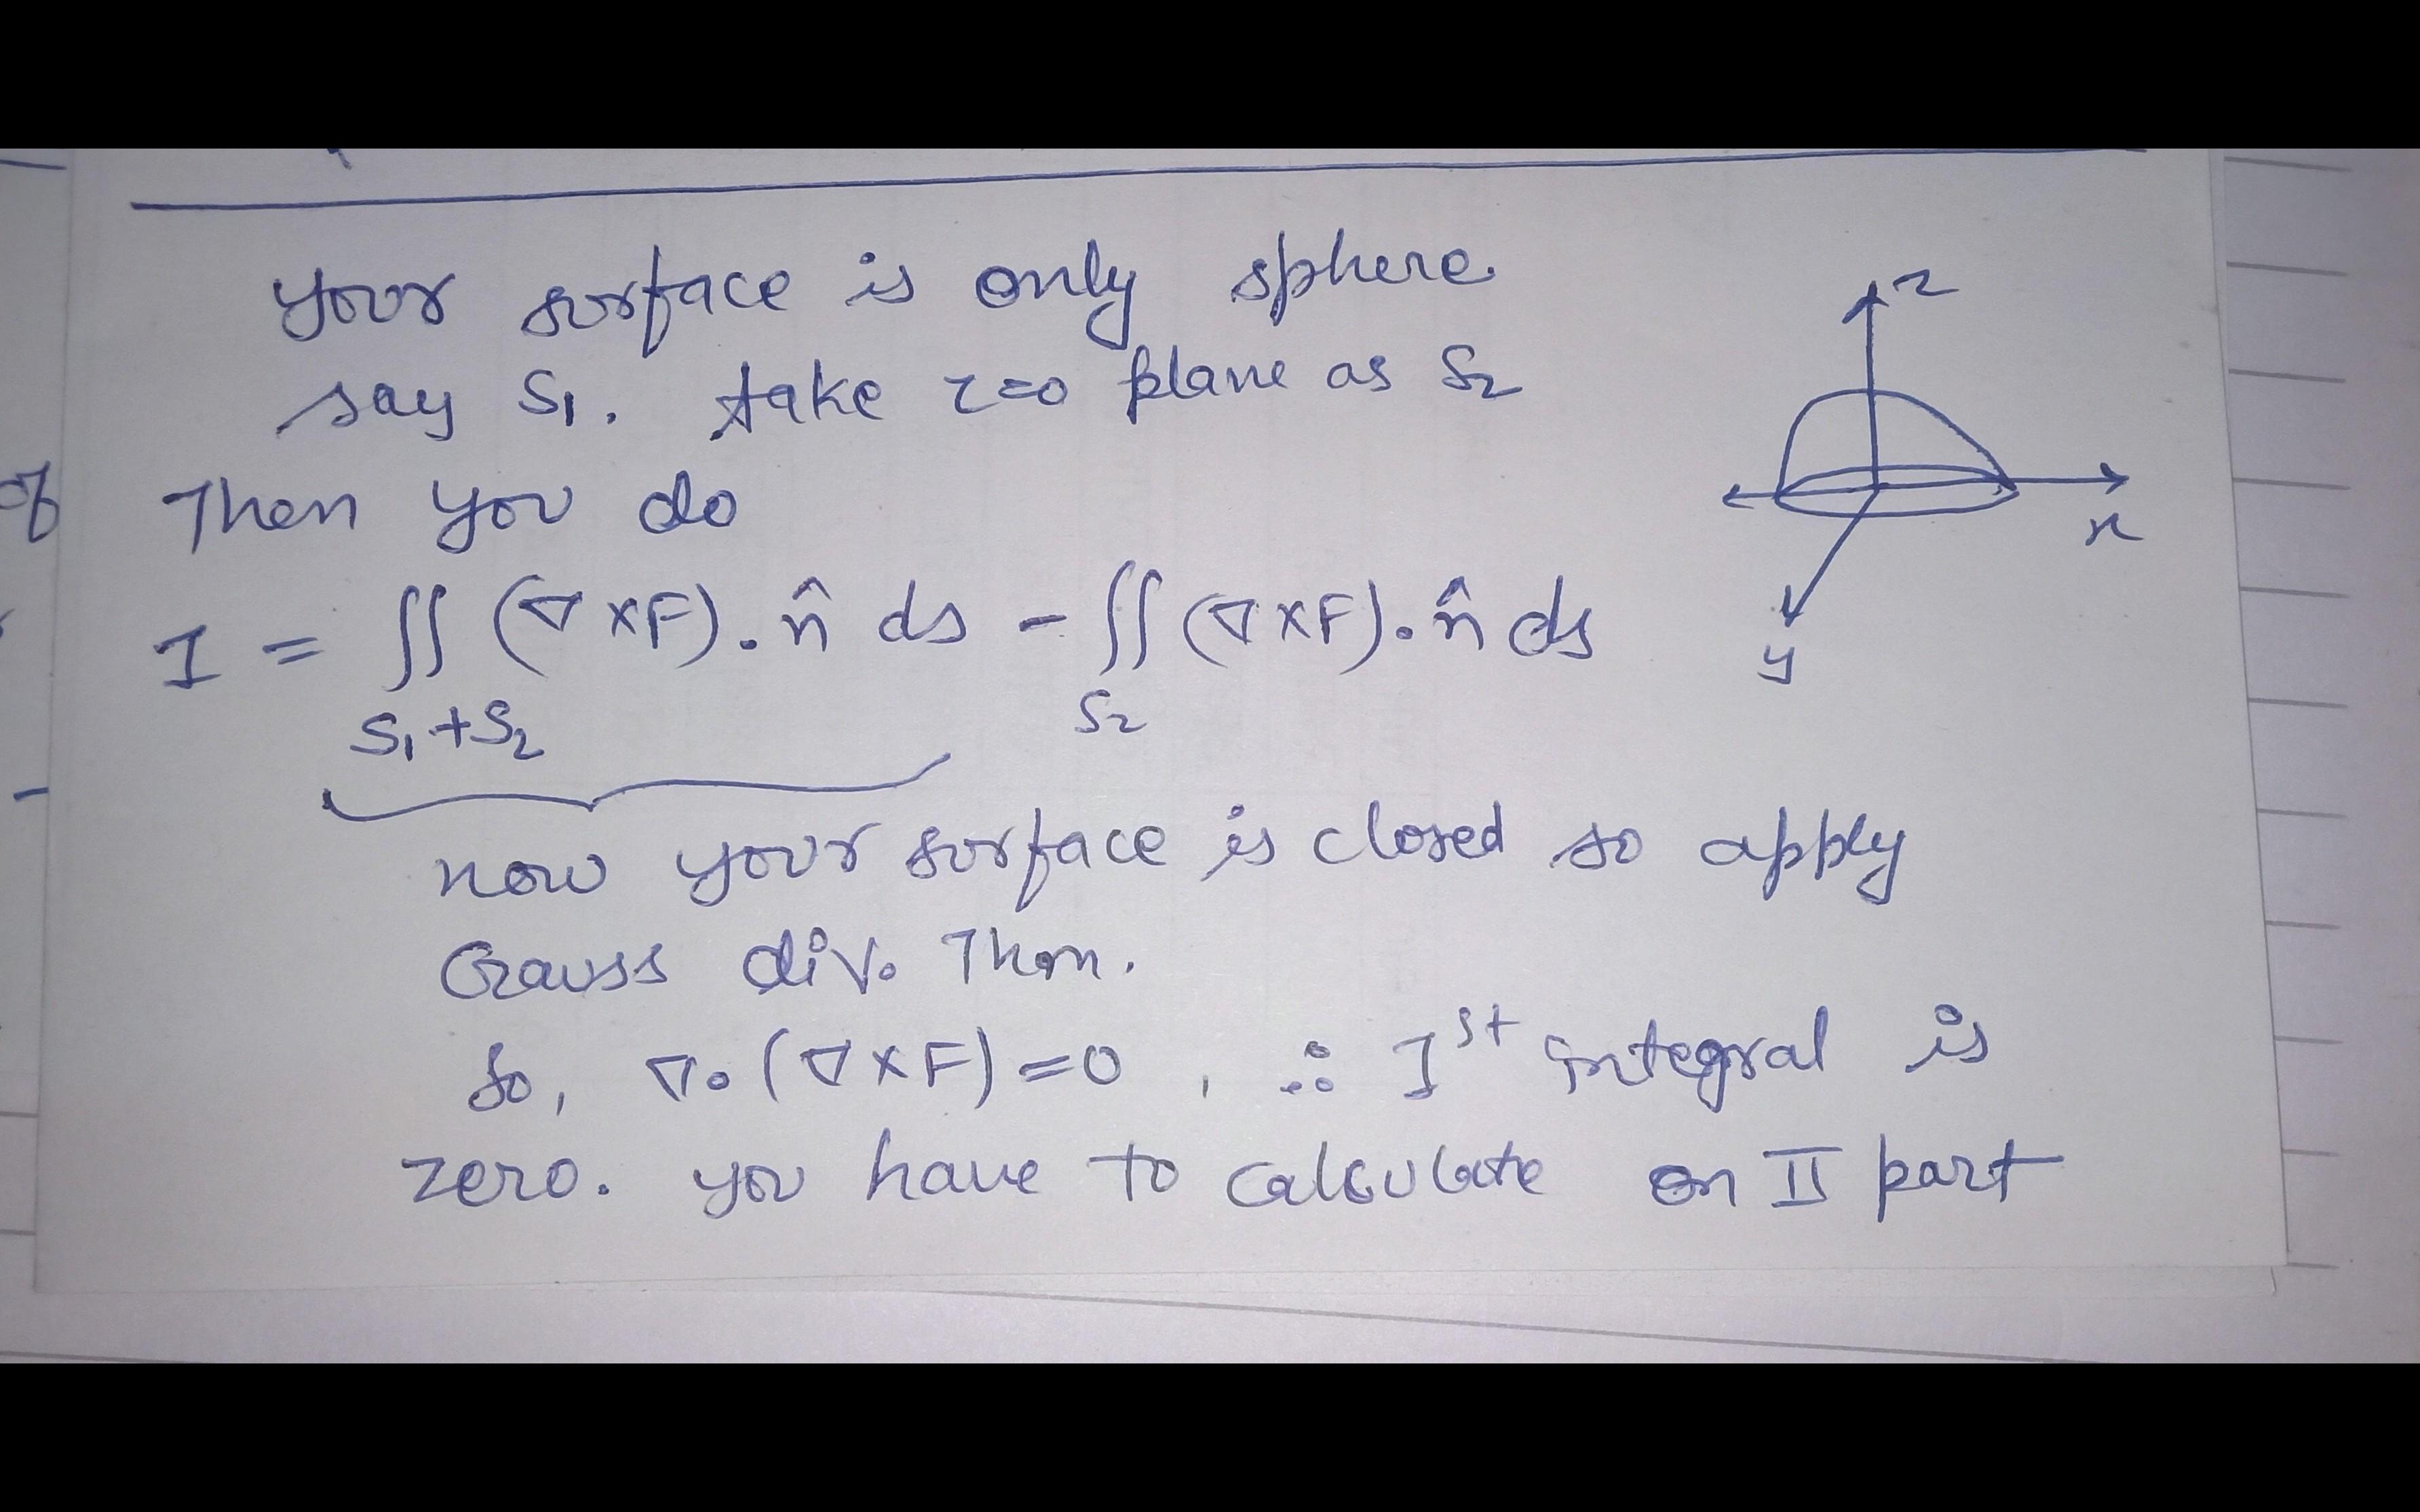 your surface is only sphere
say S₁. take z=0 plane as S₂
Then you do
I = ∬ (∇×F).n̂ ds - ∬ (∇×F).n̂ ds
S₁+S₂ S₂
now your surface is closed so apply
Gauss div. Thm.
So, ∇.(∇×F)=0, ∴ Iˢᵗ integral is
zero. you have to calculate on II part
z
x
y
of